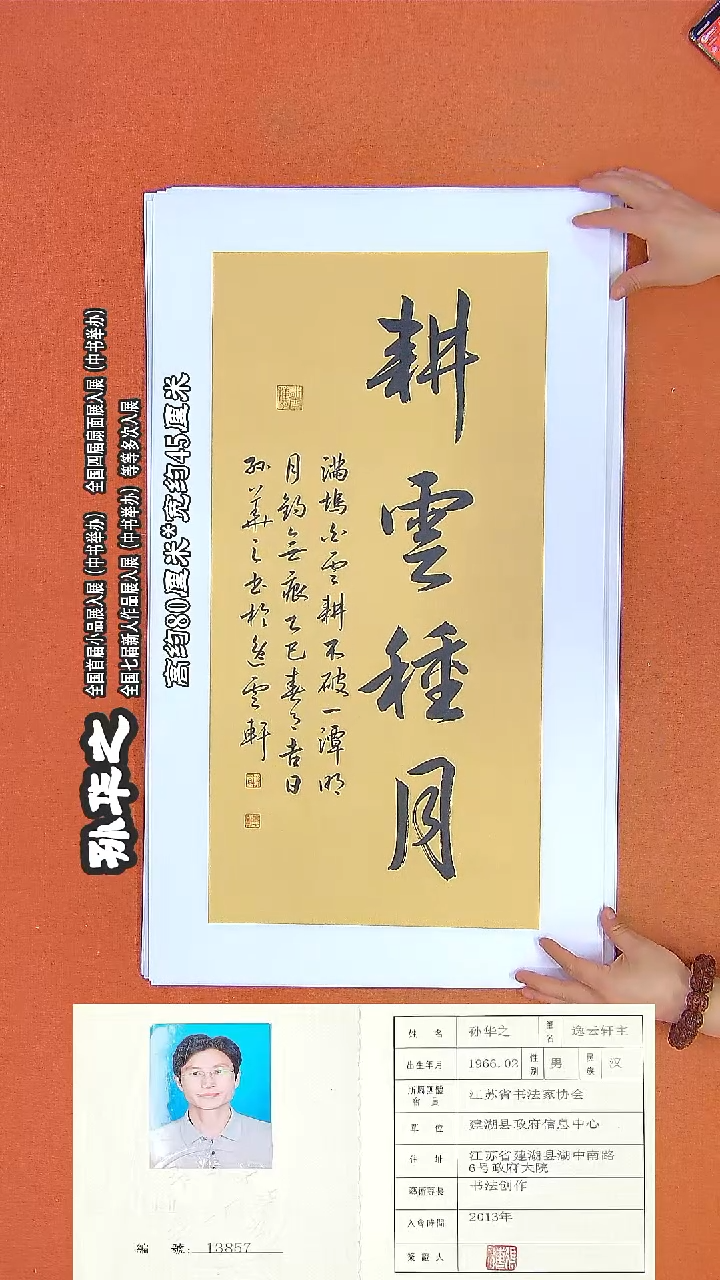 耕雲種月
滿塢白雲耕不破一潭明
月釣無痕乙巳春之吉日
孫華之书於逸雲軒
孙华之
全国首届小品展入展（中书举办） 全国四届扇面展入展（中书举办）
全国七届新人作品展入展（中书举办）等等多次入展
高约80厘米*宽约45厘米
編 號：13857
姓 名 孙华之 筆名 逸云轩主
出生年月 1966.02 性别 男 民族 汉
江苏省书法家协会
單 位 建湖县政府信息中心
住 址 江苏省建湖县湖中南路
6号政府大院
藝術專長 书法创作
入會時間 2013年
簽證人